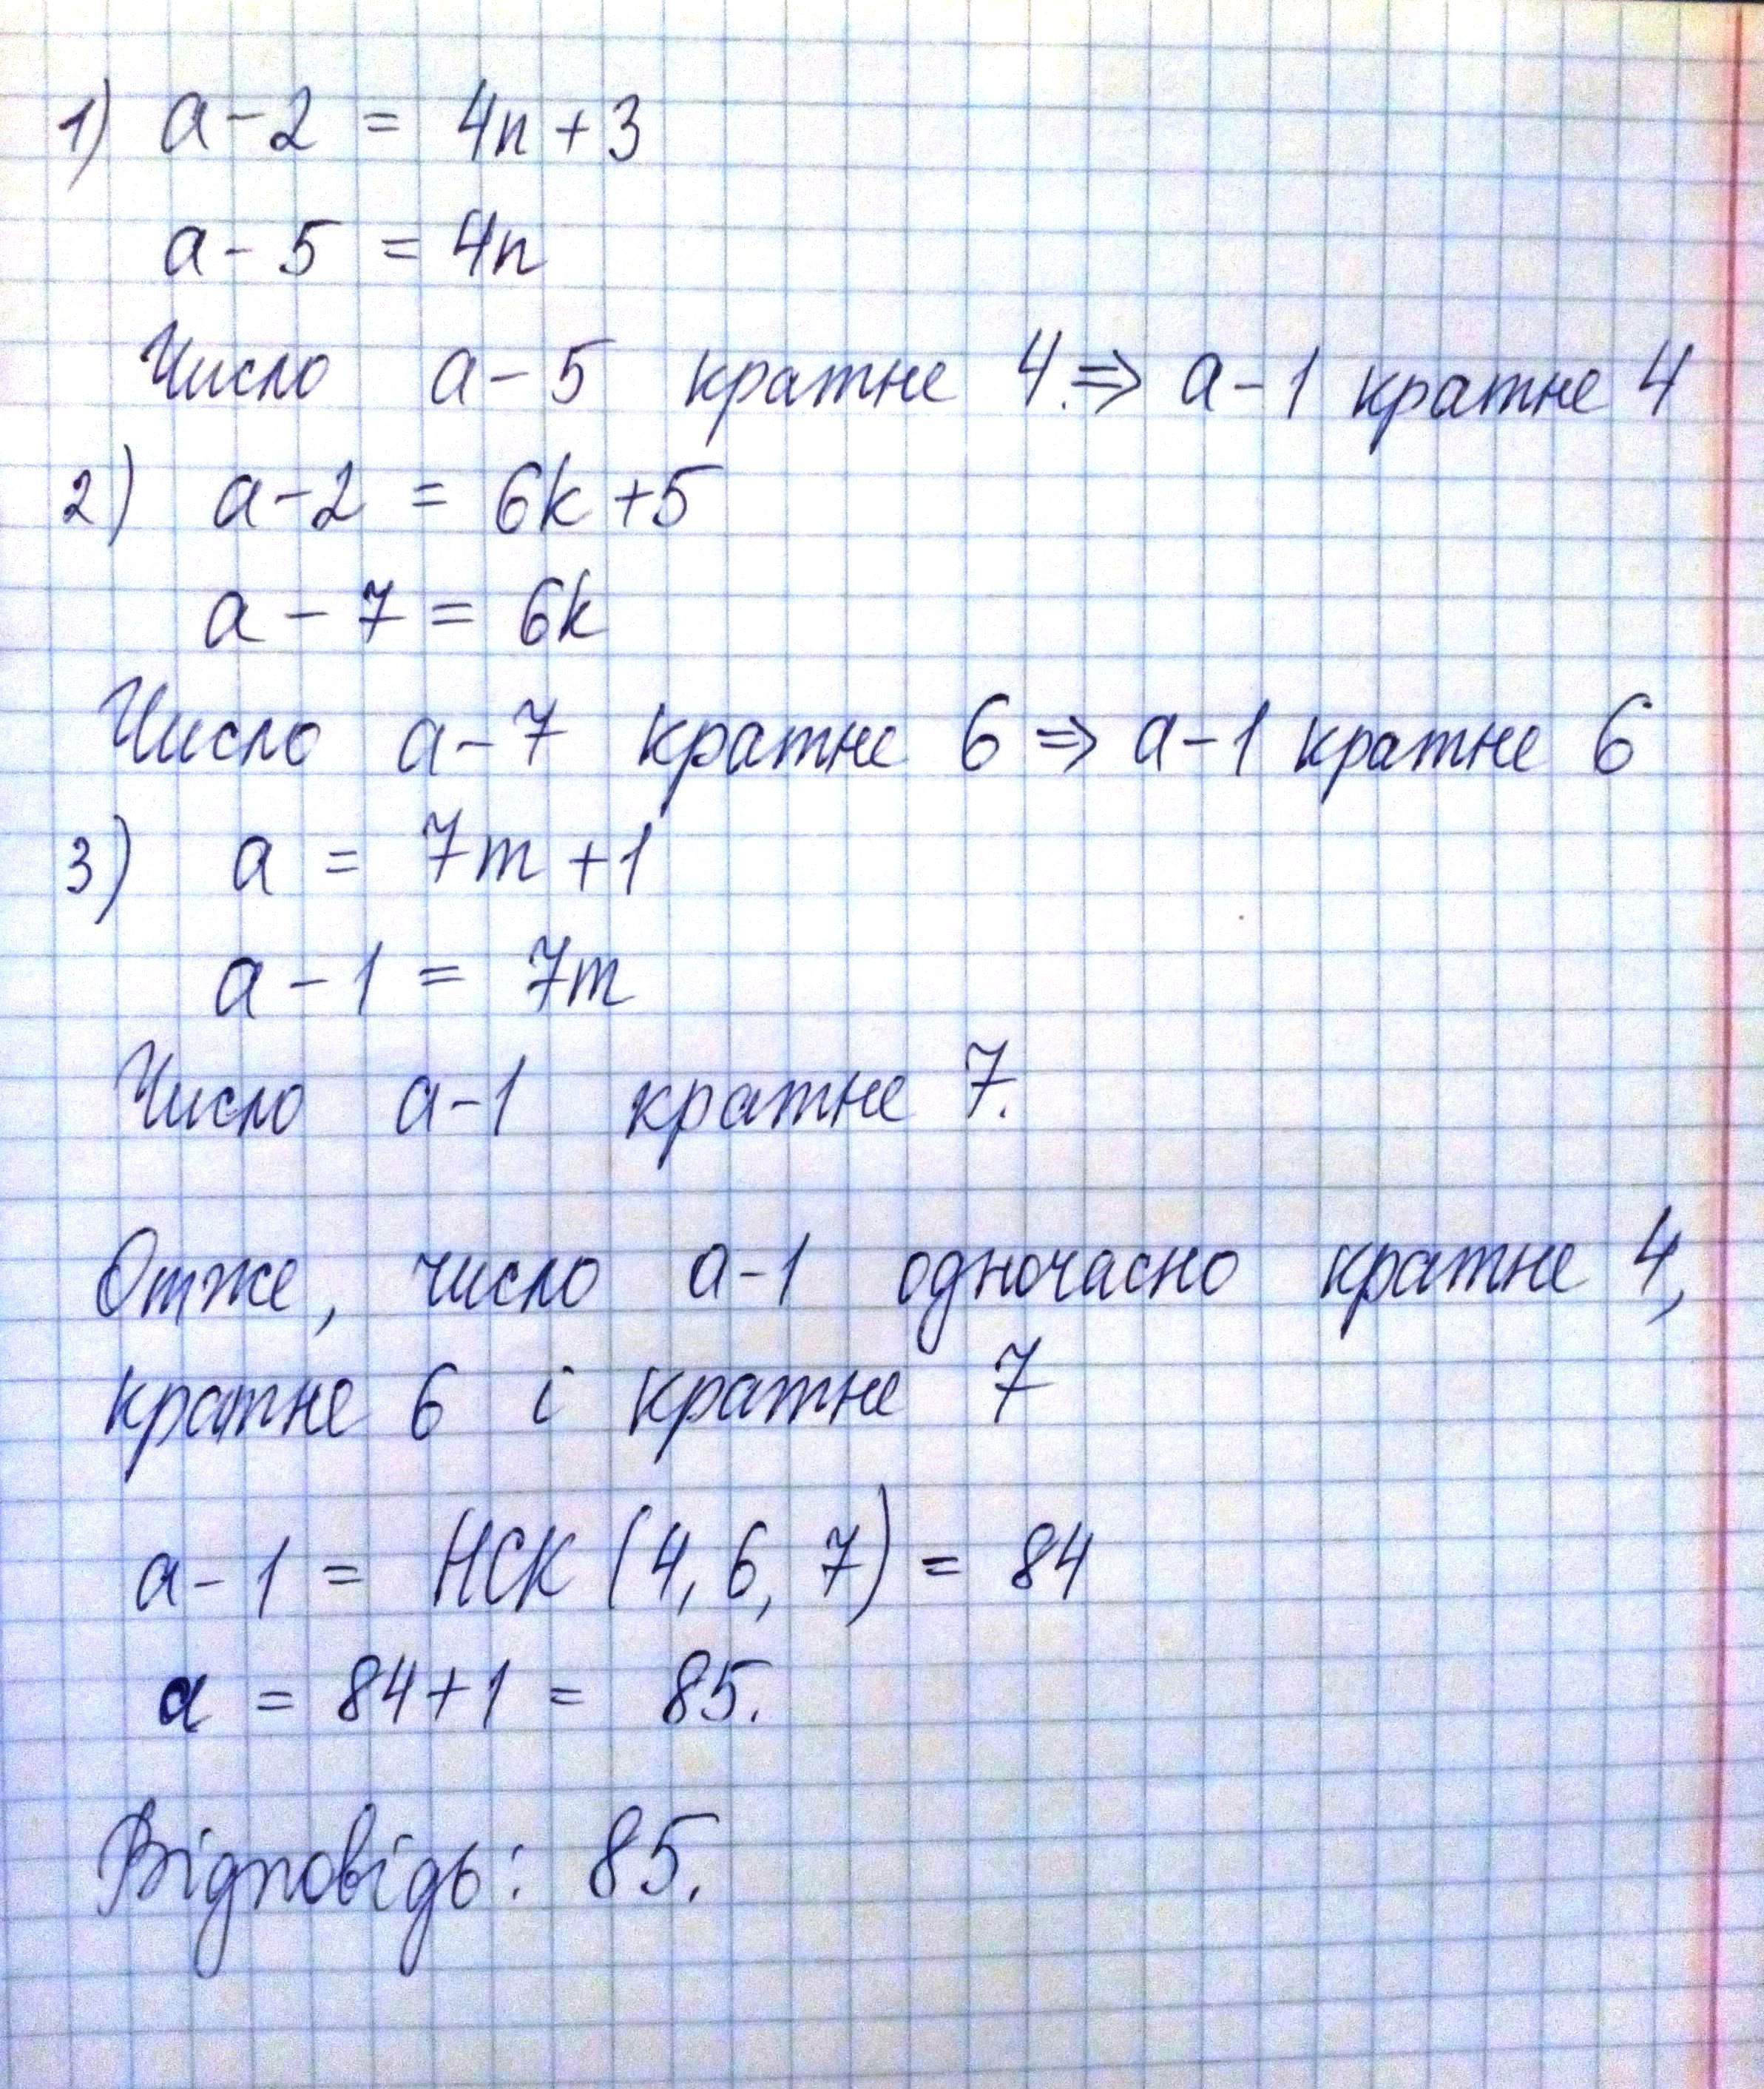 1) a - 2 = 4n + 3
a - 5 = 4n
Число a - 5 кратне 4. ⇒ a - 1 кратне 4
2) a - 2 = 6k + 5
a - 7 = 6k
Число a - 7 кратне 6 ⇒ a - 1 кратне 6
3) a = 7m + 1
a - 1 = 7m
Число a - 1 кратне 7.
Отже, число a - 1 одночасно кратне 4,
кратне 6 і кратне 7
a - 1 = НСК (4, 6, 7) = 84
a = 84 + 1 = 85.
Відповідь: 85.